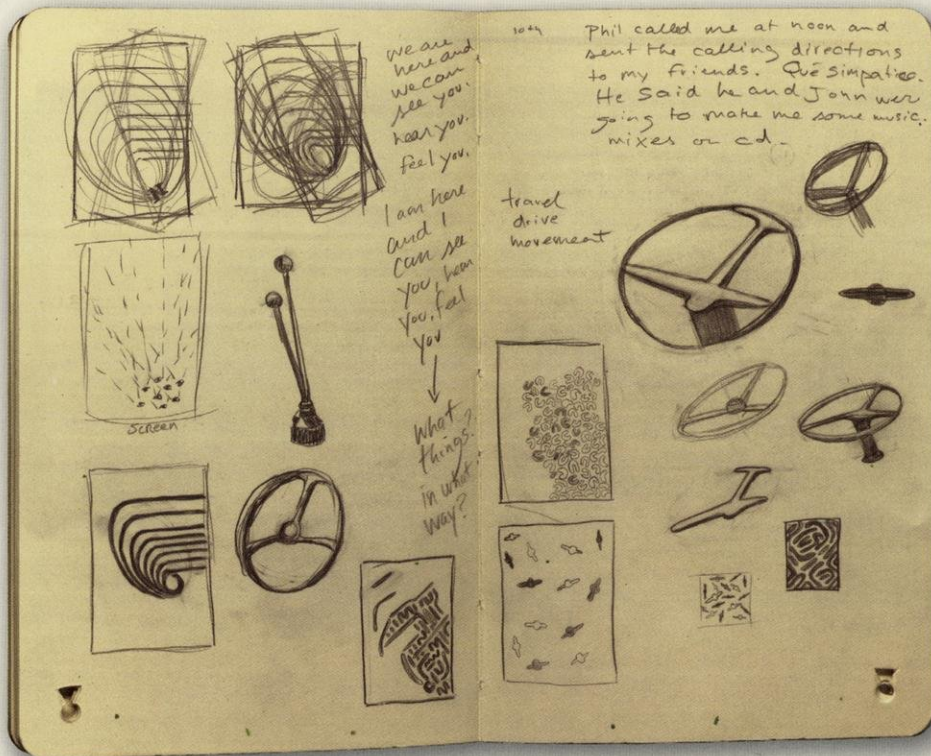 we are
here and
we can
see you.
hear you.
feel you.
I am here
and I
can see
you, hear
you, feel
you
what
things?
in what
way?
screen
10th
Phil called me at noon and
sent the calling directions
to my friends. Qué simpatico.
He said he and John were
going to make me some music.
mixes on cd.
travel
drive
movement